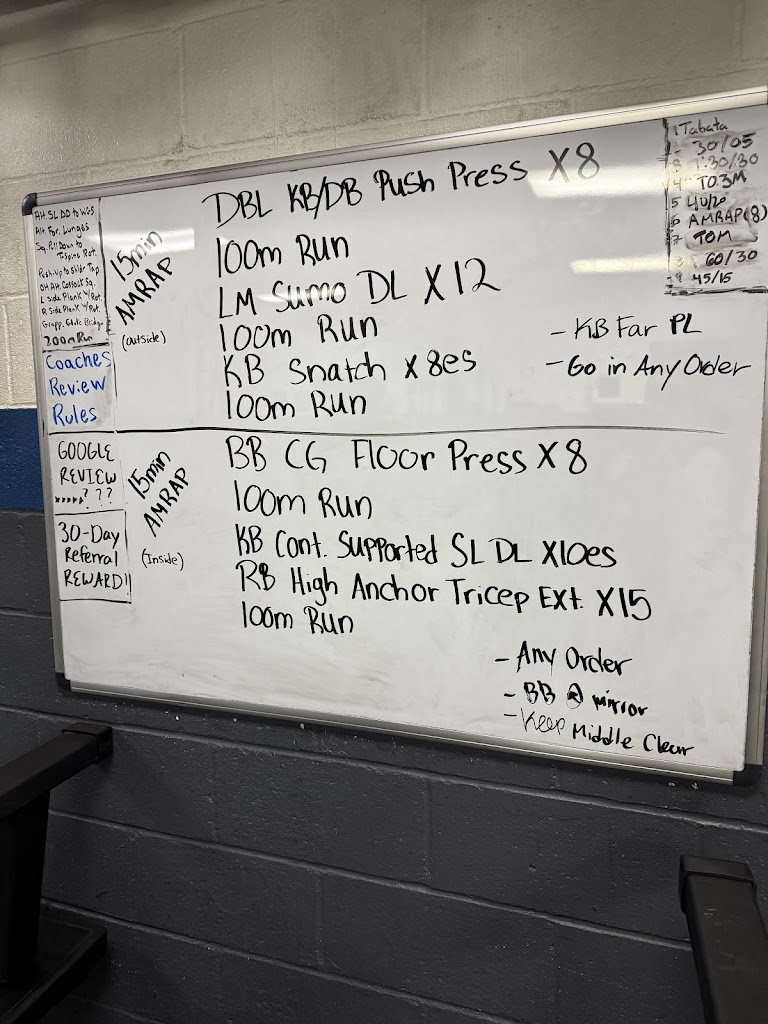 Alt. SL DD to WGS
Alt. For. Lunges
Sq. Pull Down to
T-spine Rot.
Push-Up to Shldr Tap
OH Alt. Cossack Sq.
L Side Plank w/ Rot.
R Side Plank w/ Rot.
Grapp. Glute Bridge
200m Run
Coaches
Review
Rules
GOOGLE
REVIEW
???
30-Day
Referral
REWARD!
15min
AMRAP
(outside)
DBL KB/DB Push Press X8
100m Run
LM Sumo DL X12
100m Run
KB Snatch x8es
100m Run
- KB Far PL
- Go in Any Order
15min
AMRAP
(Inside)
BB CG Floor Press X8
100m Run
KB Cont. Supported SL DL X10es
RB High Anchor Tricep Ext. X15
100m Run
- Any Order
- BB @ mirror
- Keep Middle Clear
1 Tabata
2 30/05
3 1:30/30
4 TO3M
5 40/20
6 AMRAP(8)
7 TOM
8 60/30
9 45/15